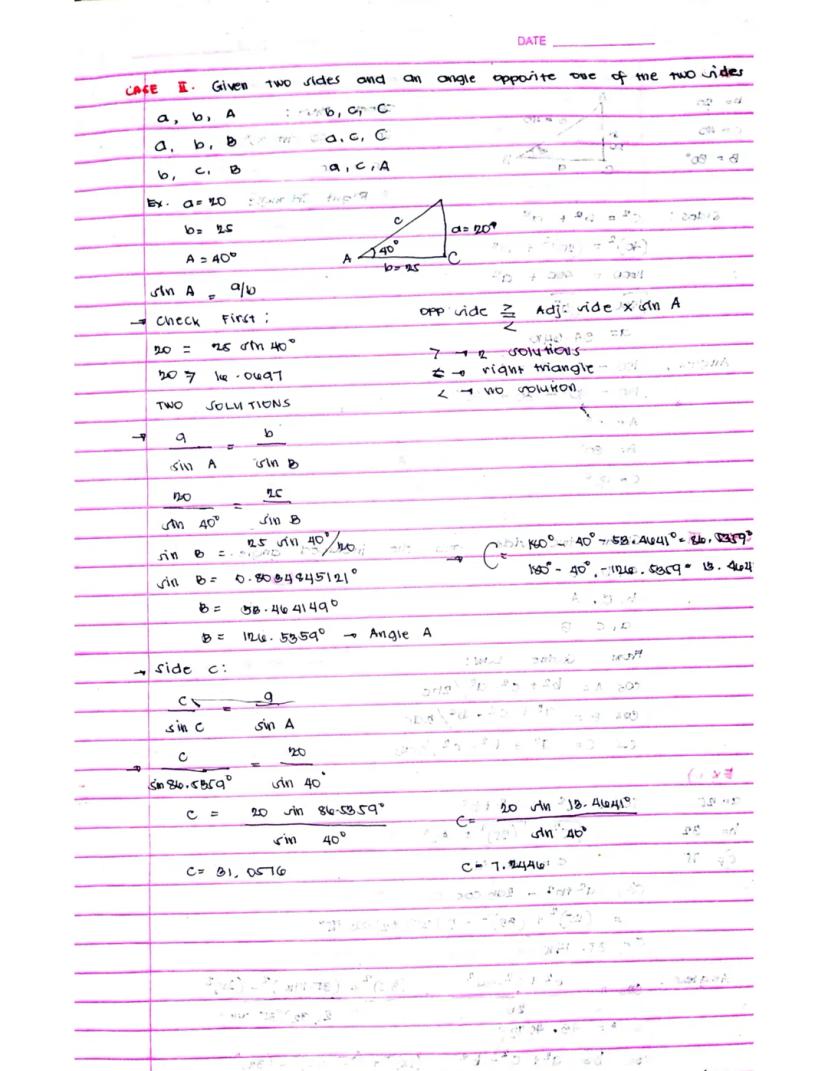 DATE
CASE II. Given two sides and an angle opposite one of the two sides
a, b, A b, c, C
a, b, B a, c, C
b, c, B a, c, A
Ex. a = 20
b = 25
A = 40°
c
a = 20°
A 40° C
b = 25
sin A = a/b
→ Check First: OPP side ≥ < Adj. side x sin A
20 = 25 sin 40° > → 2 solutions
20 > 16.0697 = → right triangle
< → no solution
TWO SOLUTIONS
→ a / sin A = b / sin B
20 / sin 40° = 25 / sin B
sin B = 25 sin 40° / 20 → C = 180° - 40° - 53.4641° = 86.5359°
sin B = 0.8034845121° 180° - 40° - 126.5359° = 13.464
B = 53.464149°
B = 126.5359° → Angle A
→ Side c:
c / sin C = a / sin A
→ c / sin 86.5359° = 20 / sin 40°
c = 20 sin 86.5359° / sin 40° C = 20 sin 13.4641° / sin 40°
c = 31.0576 C = 7.2446